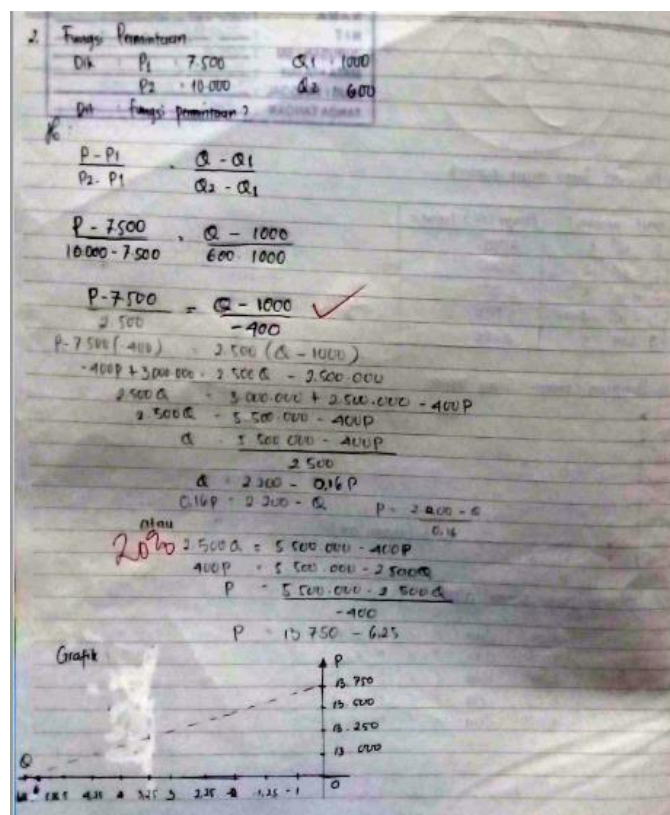 2. Fungsi Permintaan
Dik P1 : 7.500 Q1 : 1000
P2 : 10.000 Q2 600
Dit fungsi permintaan?
P - P1 / P2 - P1 = Q - Q1 / Q2 - Q1
P - 7.500 / 10.000 - 7.500 = Q - 1000 / 600 - 1000
P - 7.500 / 2.500 = Q - 1000 / -400
P - 7.500 (-400) = 2.500 (Q - 1000)
-400P + 3.000.000 = 2.500Q - 2.500.000
2.500Q = 3.000.000 + 2.500.000 - 400P
2.500Q = 5.500.000 - 400P
Q = 5.500.000 - 400P / 2.500
Q = 2.200 - 0,16P
0,16P = 2.200 - Q P = 2.200 - Q / 0,16
atau
20% 2.500Q = 5.500.000 - 400P
400P = 5.500.000 - 2.500Q
P = 5.500.000 - 2.500Q / -400
P = 13.750 - 6.25
Grafik
P
13.750
13.500
13.250
13.000
Q
4,25 4 3,25 3 2,25 2 1,25 - 1 0